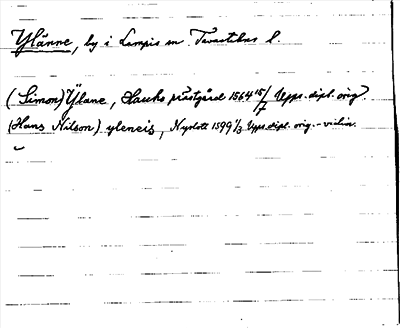 Ylänne, by i Lampis sn Tavastehus l.
(Simon) Ÿlane, Hauho prästgård 1564 15/7 Upps. dipl. orig.
(Hans Nilson) yleneis, Nyslott 1599 1/3 Upps. dipl. orig. -